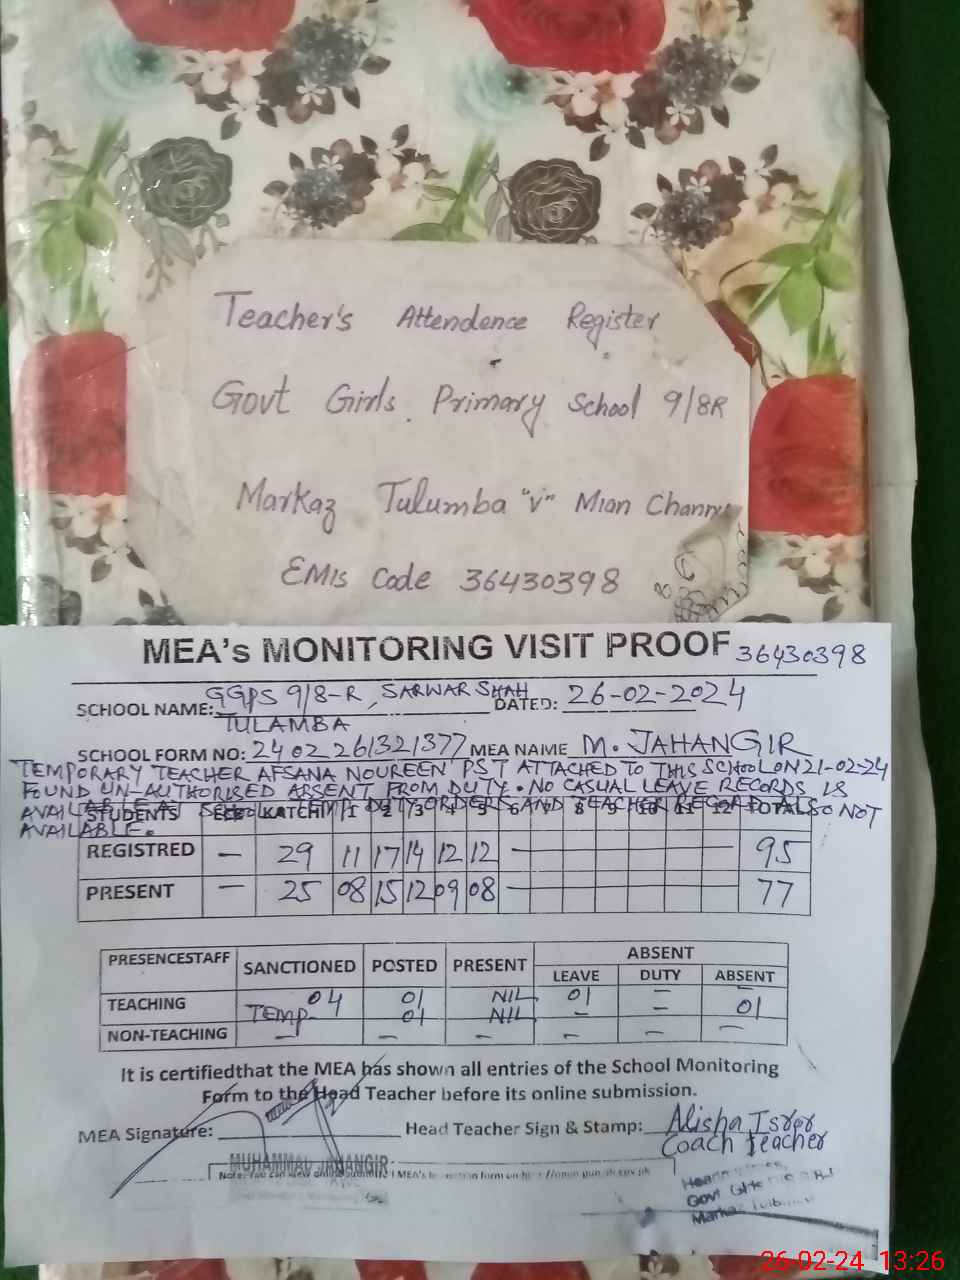 Teacher's Attendence Register
Govt Girls Primary School 9/8R
Markaz Tulumba "V" Mian Channu
EMIS Code 36430398
MEA's MONITORING VISIT PROOF 36430398
SCHOOL NAME: GGPS 9/8-R, SARWAR SHAH DATED: 26-02-2024
TULAMBA
SCHOOL FORM NO: 2402261321377 MEA NAME M. JAHANGIR
TEMPORARY TEACHER AFSANA NOUREEN PST ATTACHED TO THIS SCHOOL ON 21-02-24
FOUND UN-AUTHORISED ABSENT FROM DUTY. NO CASUAL LEAVE RECORDS IS
AVAILABLE AT SCHOOL. TEMP DUTY ORDERS AND TEACHER RECORD ALSO NOT
AVAILABLE.
STUDENTS ECE KATCHI 1 2 3 4 5 6 7 8 9 10 11 12 TOTAL
REGISTRED — 29 11 17 14 12 12 — 95
PRESENT — 25 08 15 12 09 08 — 77
PRESENCESTAFF SANCTIONED POSTED PRESENT ABSENT
LEAVE DUTY ABSENT
TEACHING 04 01 NIL 01 — —
TEMP- 01 NIL - — 01
NON-TEACHING — — — — — —
It is certifiedthat the MEA has shown all entries of the School Monitoring
Form to the Head Teacher before its online submission.
MEA Signature: Head Teacher Sign & Stamp: Alisha Israr
Coach teacher
MUHAMMAD JAHANGIR
Note: You can view online submitted MEA's
Govt
Markaz
26-02-24 13:26